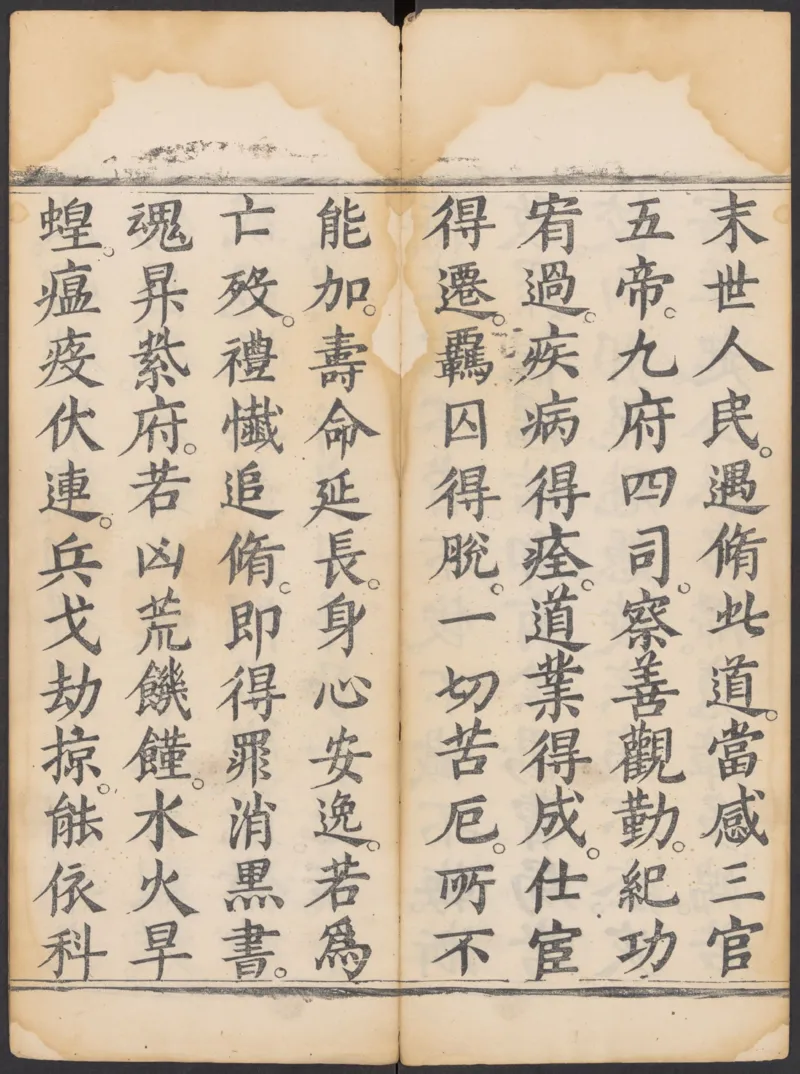 末世人民。遇脩此道。當感三官
五帝。九府四司。察善觀勤。紀功
宥過。疾病得痊。道業得成。仕宦
得遷。羈囚得脫。一切苦厄。所不
能加。壽命延長。身心安逸。若爲
亡歿。禮懺追脩。即得罪消黑書。
魂昇紫府。若凶荒饑饉。水火旱
蝗。瘟疫伏連。兵戈劫掠。能依科